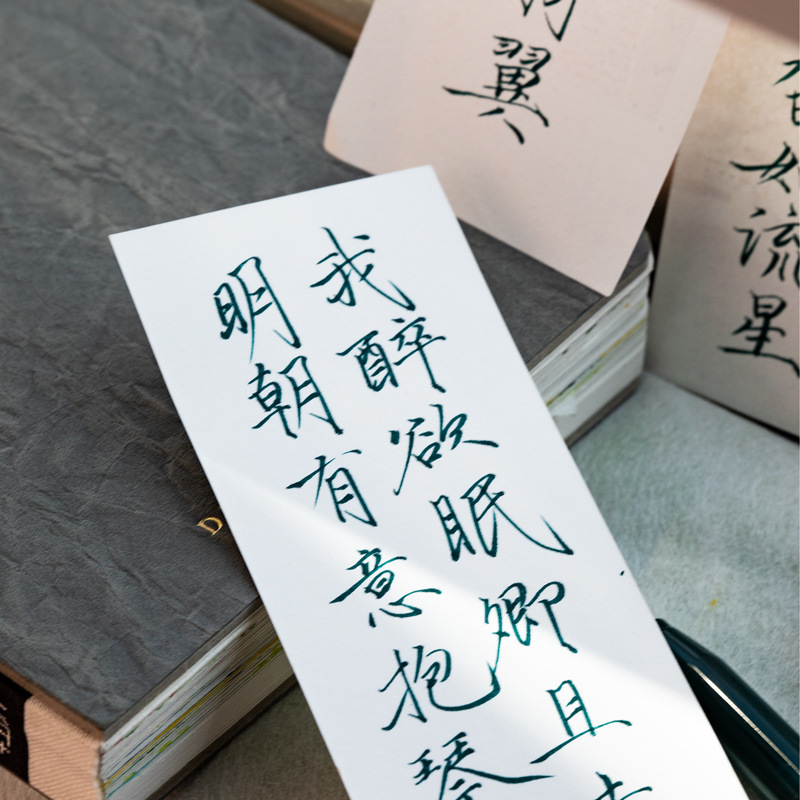 翼
如流星
我醉欲眠卿且
明朝有意抱琴
D